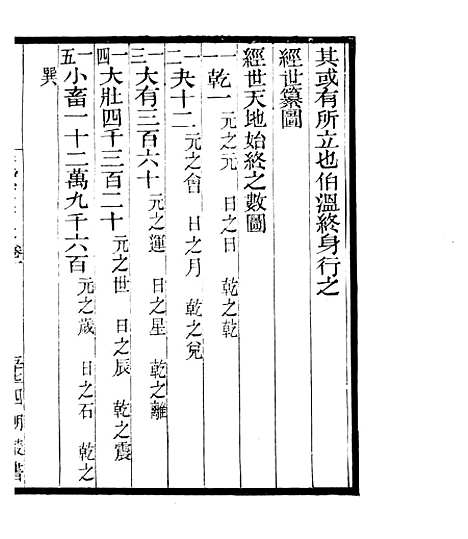 其或有所立也伯溫終身行之
經世纂圖
經世天地始終之數圖
一一 乾一 元之元 日之日 乾之乾
一二 夬十二 元之會 日之月 乾之兌
一三 大有三百六十 元之運 日之星 乾之離
一四 大壯四千三百二十 元之世 日之辰 乾之震
一五 小畜一十二萬九千六百 元之歲 日之石 乾之
巽
卷一
四明叢書